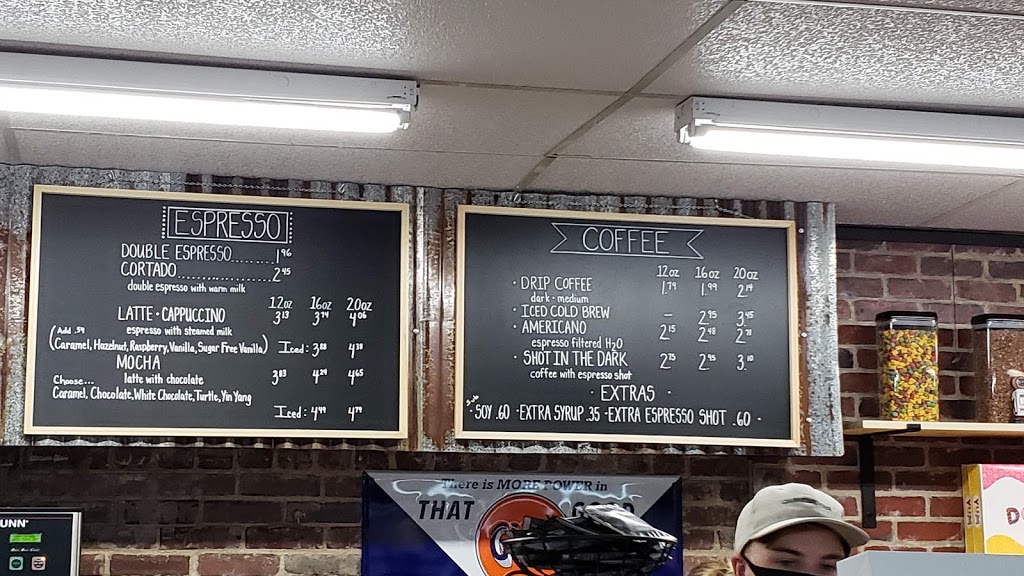 ESPRESSO
DOUBLE ESPRESSO......... 1.96
CORTADO.................. 2.45
double espresso with warm milk
12oz 16oz 20oz
LATTE · CAPPUCCINO 3.13 3.74 4.06
espresso with steamed milk
(Add .59
Caramel, Hazelnut, Raspberry, Vanilla, Sugar Free Vanilla) Iced: 3.88 4.38
MOCHA
latte with chocolate 3.83 4.29 4.65
Choose...
Caramel, Chocolate, White Chocolate, Turtle, Yin Yang
Iced: 4.49 4.79
COFFEE
12oz 16oz 20oz
· DRIP COFFEE 1.79 1.99 2.14
dark · medium
· ICED COLD BREW — 2.95 3.45
· AMERICANO 2.15 2.48 2.78
espresso filtered H2O
· SHOT IN THE DARK 2.75 2.95 3.10
coffee with espresso shot
· EXTRAS ·
· SOY .60 · EXTRA SYRUP .35 · EXTRA ESPRESSO SHOT .60 ·
There is MORE POWER in
THAT
UNN